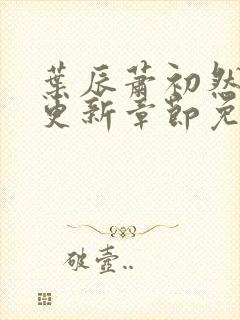 葉辰蕭初然
更新章節免
破壺..